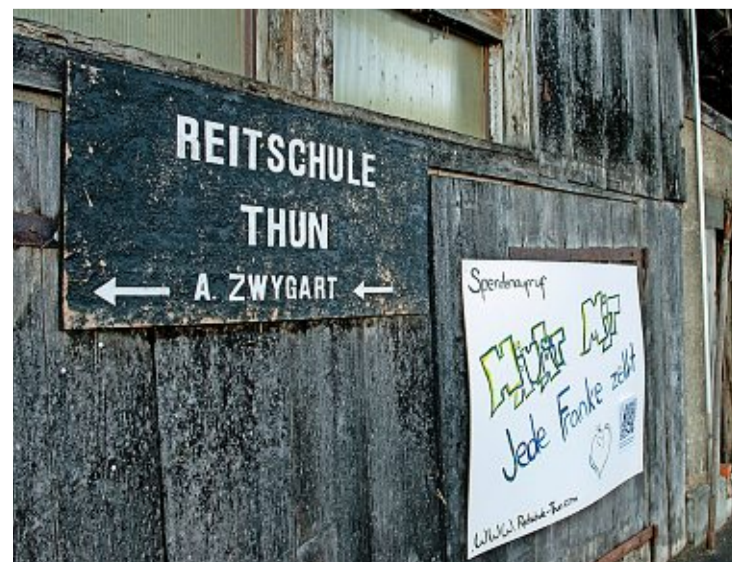 REITSCHULE
THUN
← A. ZWYGART ←
Spendenaufruf
HÄUFT MIT
Jede Franke zellt
www.Reitschule-Thun.com